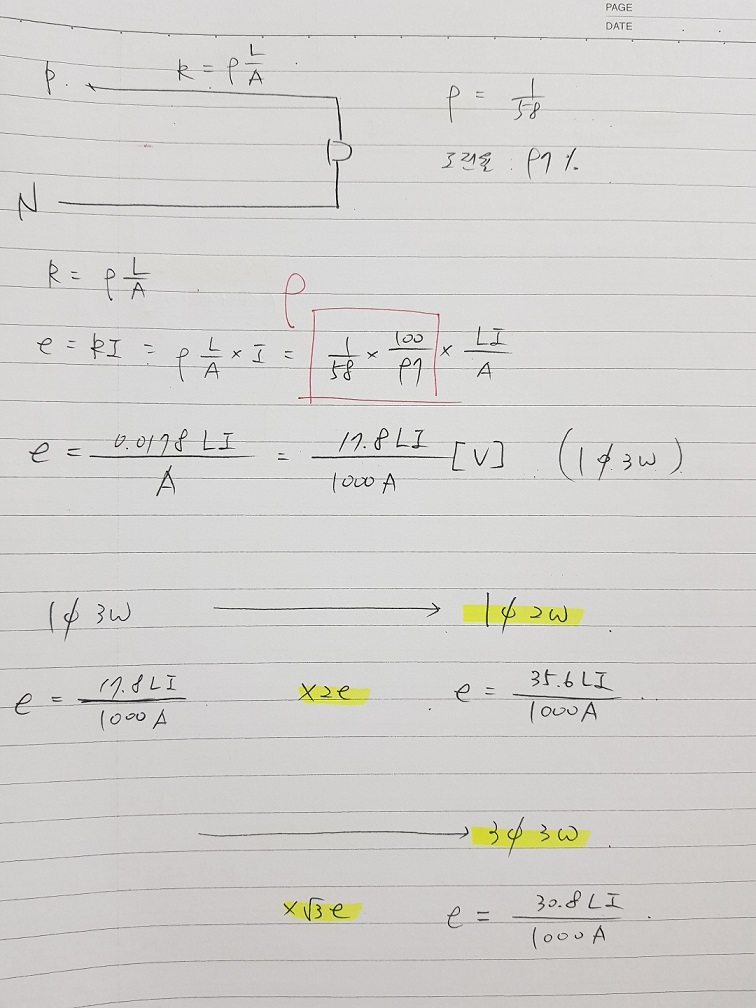 PAGE
DATE
P. R = ρ L/A
ρ = 1/58
도전율 : 97 %
N
R = ρ L/A
ρ
e = RI = ρ L/A × I = 1/58 × 100/97 × LI/A
e = 0.0178 LI / A = 17.8 LI / 1000 A [V] (1φ3W)
1φ 3W → 1φ 2W
e = 17.8 LI / 1000 A ×2e e = 35.6 LI / 1000 A
→ 3φ 3W
×√3 e e = 30.8 LI / 1000 A